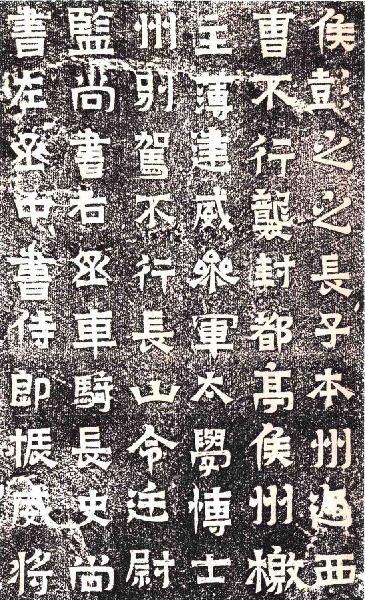 侯彭之之長子本州西
曹不行襲封都亭侯州檄
主薄建威參軍太學博士
州別駕不行長山令廷尉
監尚書右丞車騎長史尚
書左丞中書侍郎振威將